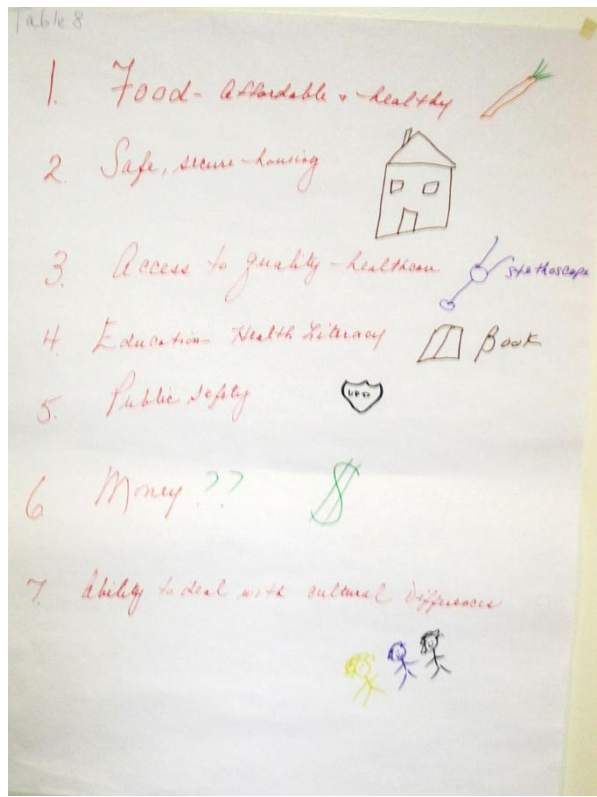 Table 8
1. Food - Affordable + healthy
2. Safe, secure housing
3. Access to quality healthcare
stethoscope
4. Education - Health Literacy
Book
5. Public safety
6 Money ??
$
7. Ability to deal with cultural differences